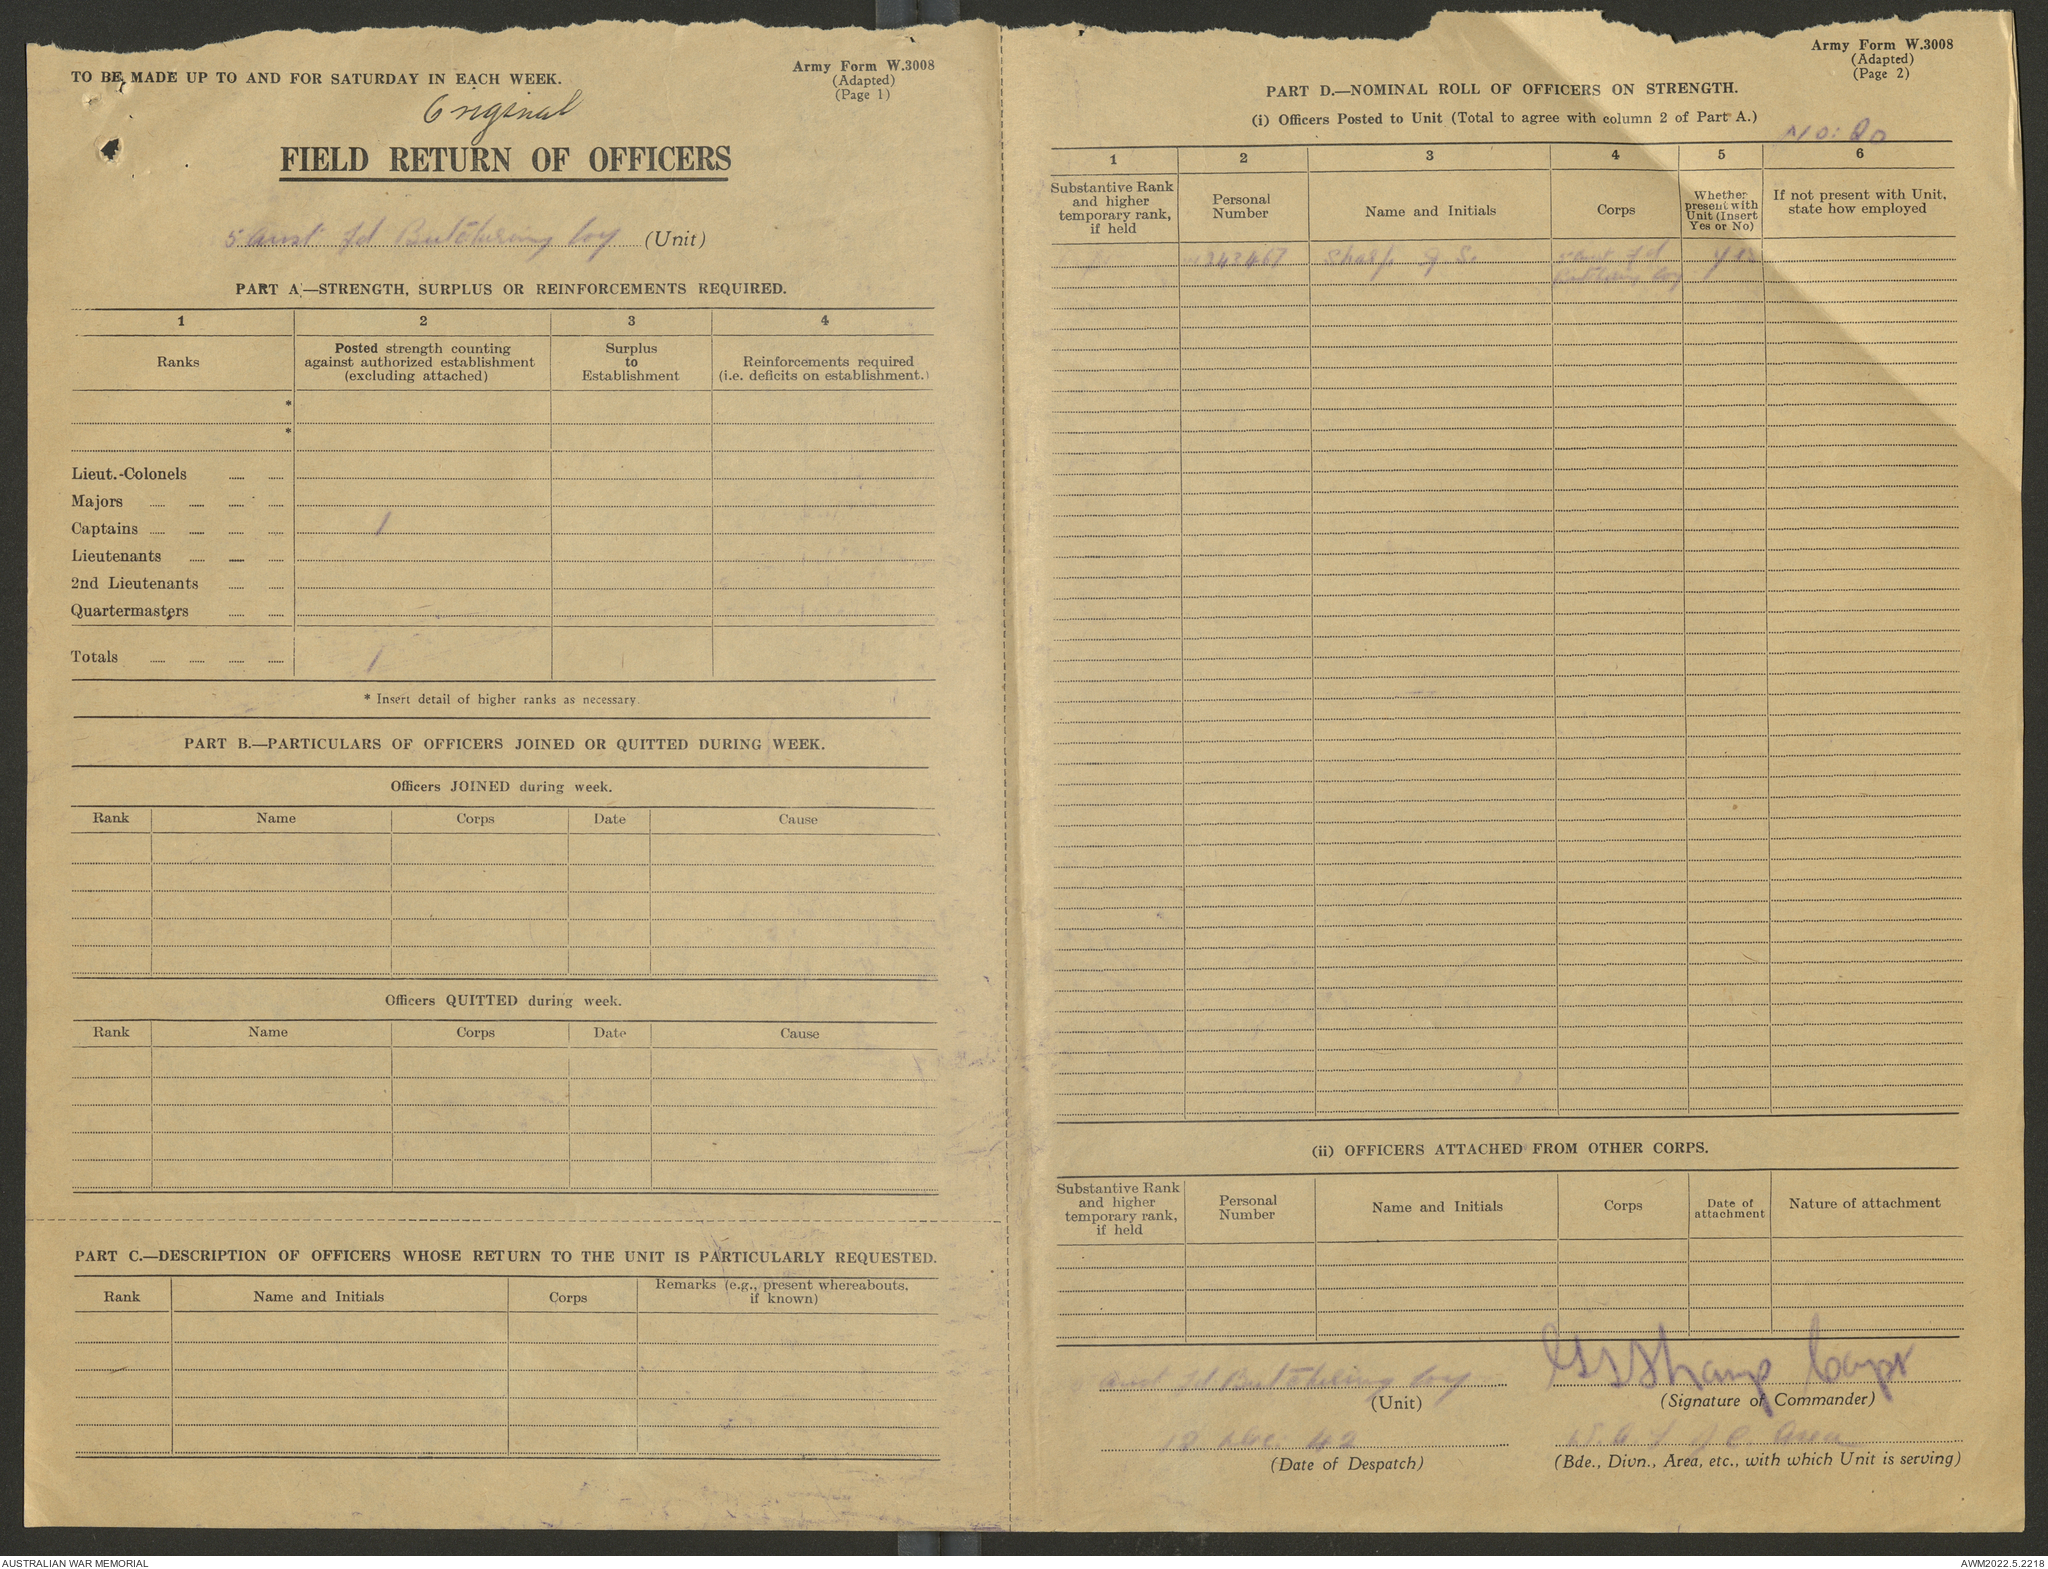 TO BE MADE UP TO AND FOR SATURDAY IN EACH WEEK.
Army Form W.3008
(Adapted)
(Page 1)
Original
FIELD RETURN OF OFFICERS
5 Aust Fd Butchering Coy (Unit)
PART A.—STRENGTH, SURPLUS OR REINFORCEMENTS REQUIRED.
1 2 3 4
Ranks
Posted strength counting
against authorized establishment
(excluding attached)
Surplus
to
Establishment
Reinforcements required
(i.e. deficits on establishment.)
*
*
Lieut.-Colonels
Majors
Captains 1
Lieutenants
2nd Lieutenants
Quartermasters
Totals 1
* Insert detail of higher ranks as necessary.
PART B.—PARTICULARS OF OFFICERS JOINED OR QUITTED DURING WEEK.
Officers JOINED during week.
Rank Name Corps Date Cause
Officers QUITTED during week.
Rank Name Corps Date Cause
PART C.—DESCRIPTION OF OFFICERS WHOSE RETURN TO THE UNIT IS PARTICULARLY REQUESTED.
Rank Name and Initials Corps
Remarks (e.g., present whereabouts,
if known)
Army Form W.3008
(Adapted)
(Page 2)
PART D.—NOMINAL ROLL OF OFFICERS ON STRENGTH.
(i) Officers Posted to Unit (Total to agree with column 2 of Part A.)
No: 20
1 2 3 4 5 6
Substantive Rank
and higher
temporary rank,
if held
Personal
Number
Name and Initials
Corps
Whether
present with
Unit (Insert
Yes or No)
If not present with Unit,
state how employed
Sharp G S. 5 Aust Fd Yes
Butchering Coy
(ii) OFFICERS ATTACHED FROM OTHER CORPS.
Substantive Rank
and higher
temporary rank,
if held
Personal
Number
Name and Initials
Corps
Date of
attachment
Nature of attachment
Aust Fd Butchering Coy
(Unit)
GSSharp Capt
(Signature of Commander)
12 Dec 42
(Date of Despatch)
Area
(Bde., Divn., Area, etc., with which Unit is serving)
AUSTRALIAN WAR MEMORIAL
AWM2022.5.2218